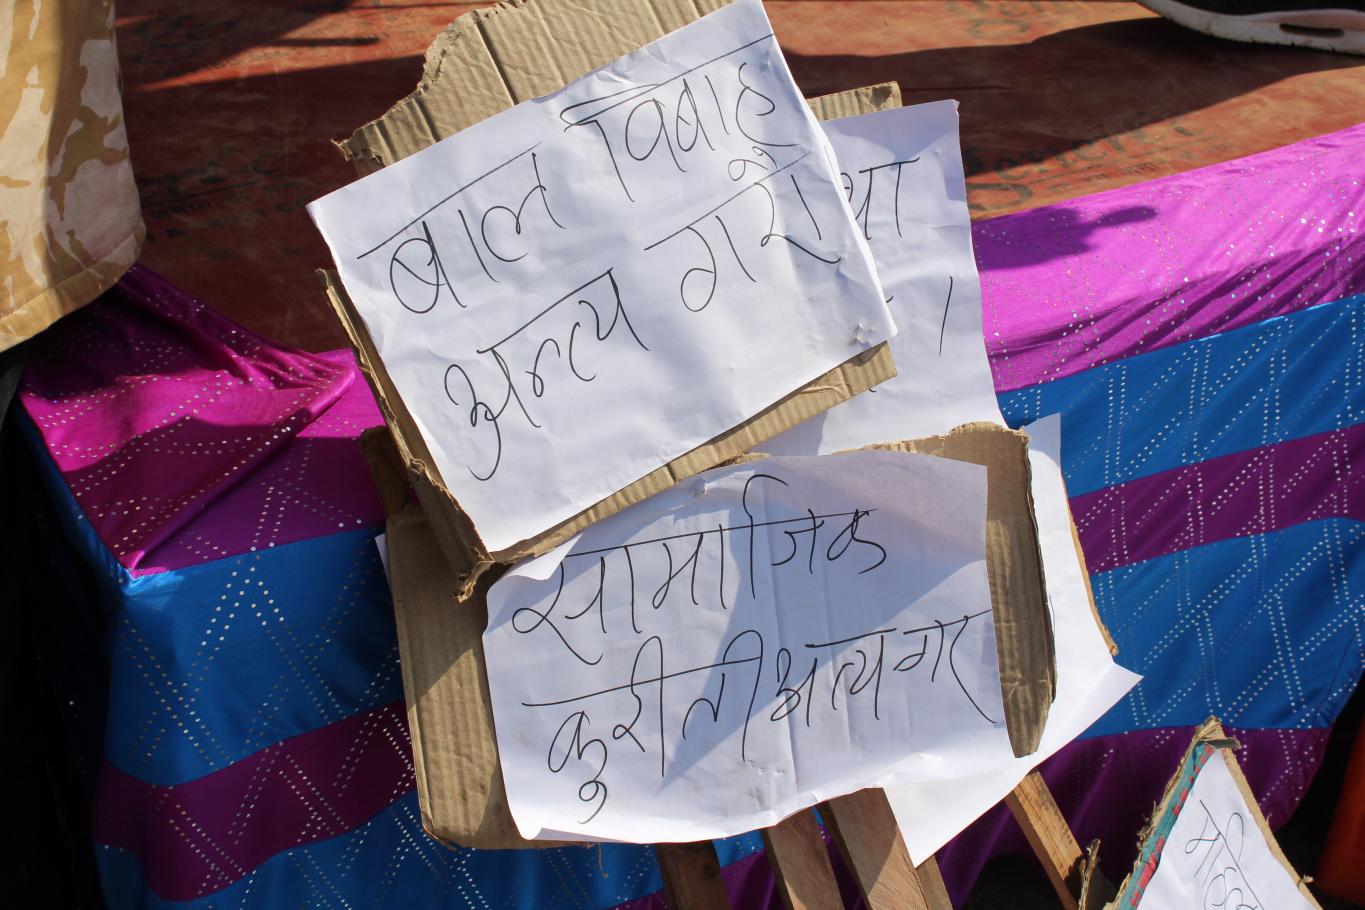 बाल विबाह
अन्त्य गरौ
सामाजिक
कुरीती अत्यगर